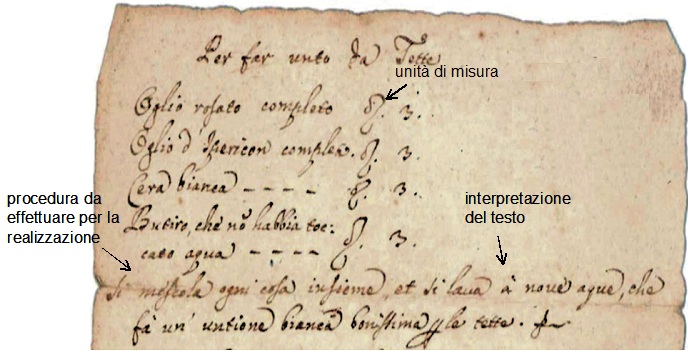 Per far unto da Tette
unità di misura
Oglio rosato completo ℥. 3.
Oglio d'Ipericon complea. ℥. 3.
Cera bianca - - - - ℥. 3.
procedura da
effettuare per la
realizzazione
interpretazione
del testo
Butiro, che nõ habbia toc:
cato aqua - - - - ℥. 3.
Si mescola ogni cosa insieme, et si lava à nove aque, che
fà un' untione bianca bonissima le tette.